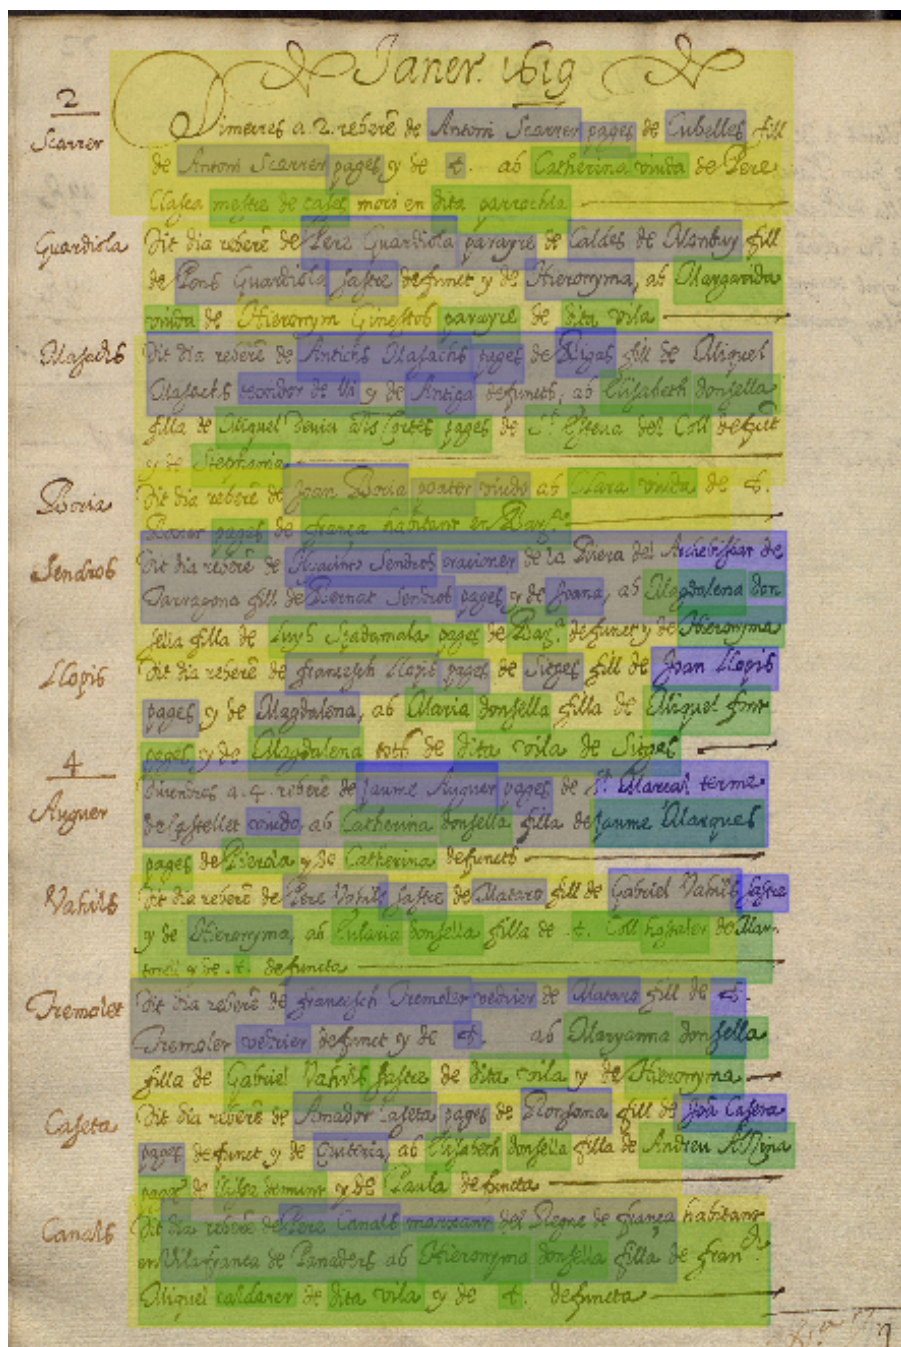 Janer. 1619
2
Scarrer
Dimecres a .2. reberē de Antoni Scarrer pages de Cubelles fill
de Antoni Scarrer pages y de t. ab Catherina viuda de Pere
Clasca mestre de cases mori en dita parrochia
Guardiola
Dit dia reberē de Pere Guardiola parayre de Caldes de Monbuy fill
de Pons Guardiola sastre defunct y de Hieronyma, ab Margarida
viuda de Hieronym Ginestos parayre de dita vila
Masachs
Dit dia reberē de Antichs Masachs pages de Bigas fill de Miquel
Masachs texidor de lli y de Antiga defuncts, ab Elisabeth donsella
filla de Miquel Devia als Cortes pages de St. Esteva del Coll defūct
y de Stephania
Boria
Dit dia reberē de Joan Boria porter viudo ab Clara viuda de t.
pages de frança habitant en Bar.na
Sendros
Dit dia reberē de Hyacinto Sendros oracioner de la Riera del Archebisbat de
Tarragona fill de Bernat Sendros pages y de Joana, ab Magdalena don
sella filla de Luys Spadamala pages de Bar.a defunct y de Hieronyma
Llopis
Dit dia reberē de francesch Llopis pages de Sitges fill de Joan Llopis
pages y de Magdalena, ab Maria donsella filla de Miquel font
pages y de Magdalena tots de dita vila de Sitges
4
Auguer
Divendres a .4. reberē de Jaume Auguer pages de St. Marcal terme
de Castellet viudo, ab Catherina donsella filla de Jaume Marques
pages de Pierola y de Catherina defuncts
Vahils
Dit dia reberē de Pere Vahils sastre de Mataro fill de Gabriel Vahils sastre
y de Hieronyma, ab Eularia donsella filla de .t. Coll hostaler de Mar-
torell y de .t. defuncta
Tremolet
Dit dia reberē de francesch Tremoler vedrier de Mataro fill de t.
Tremoler vedrier defunct y de t. ab Maryanna donsella
filla de Gabriel Vahils sastre de dita vila y de Hieronyma
Caseta
Dit dia reberē de Amador Caseta pages de Ronsana fill de Joā Casera
pages defunct y de Quiteria, ab Elisabeth donsella filla de Andreu
pages de y de Paula defuncta
Canals
Dit dia reberē de Pere Canals marxant del Regne de frança habitant
en Vilafranca de Panades ab Hieronyma donsella filla de fran.ch
Miquel caldarer de dita vila y de t. defuncta